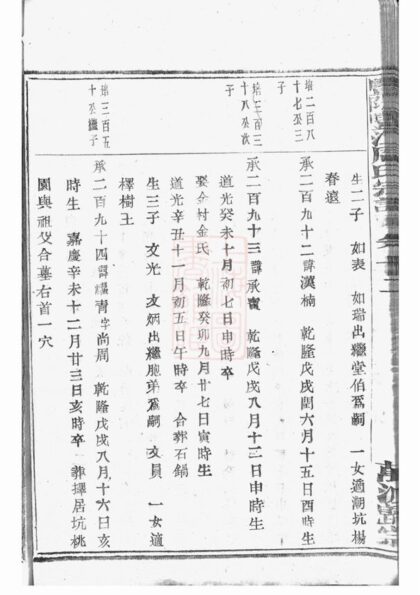 生二子 如表 如瑞出繼堂伯爲嗣 一女適湖坑楊
春遠
承二百九十二諱漢楠 乾隆戊戌閏六月十五日酉時生
承二百九十三諱承 乾隆戊戌八月十二日申時生
道光癸未十月初七日申時卒
娶 村金氏 乾隆癸卯九月廿七日寅時生
道光辛丑十一月初五日午時卒 合葬石鍋
生三子 文光 文炳出繼胞弟爲嗣 文員 一女適
樟樹王
承二百九十四諱 青字尚周 乾隆戊戌八月十六日亥
時生 嘉慶辛未十二月廿三日亥時卒 葬擇居坑桃
園與祖父合墓右首一穴
培二百八
十七公三
子
培三百三
十八公次
子
培三百五
十公繼子